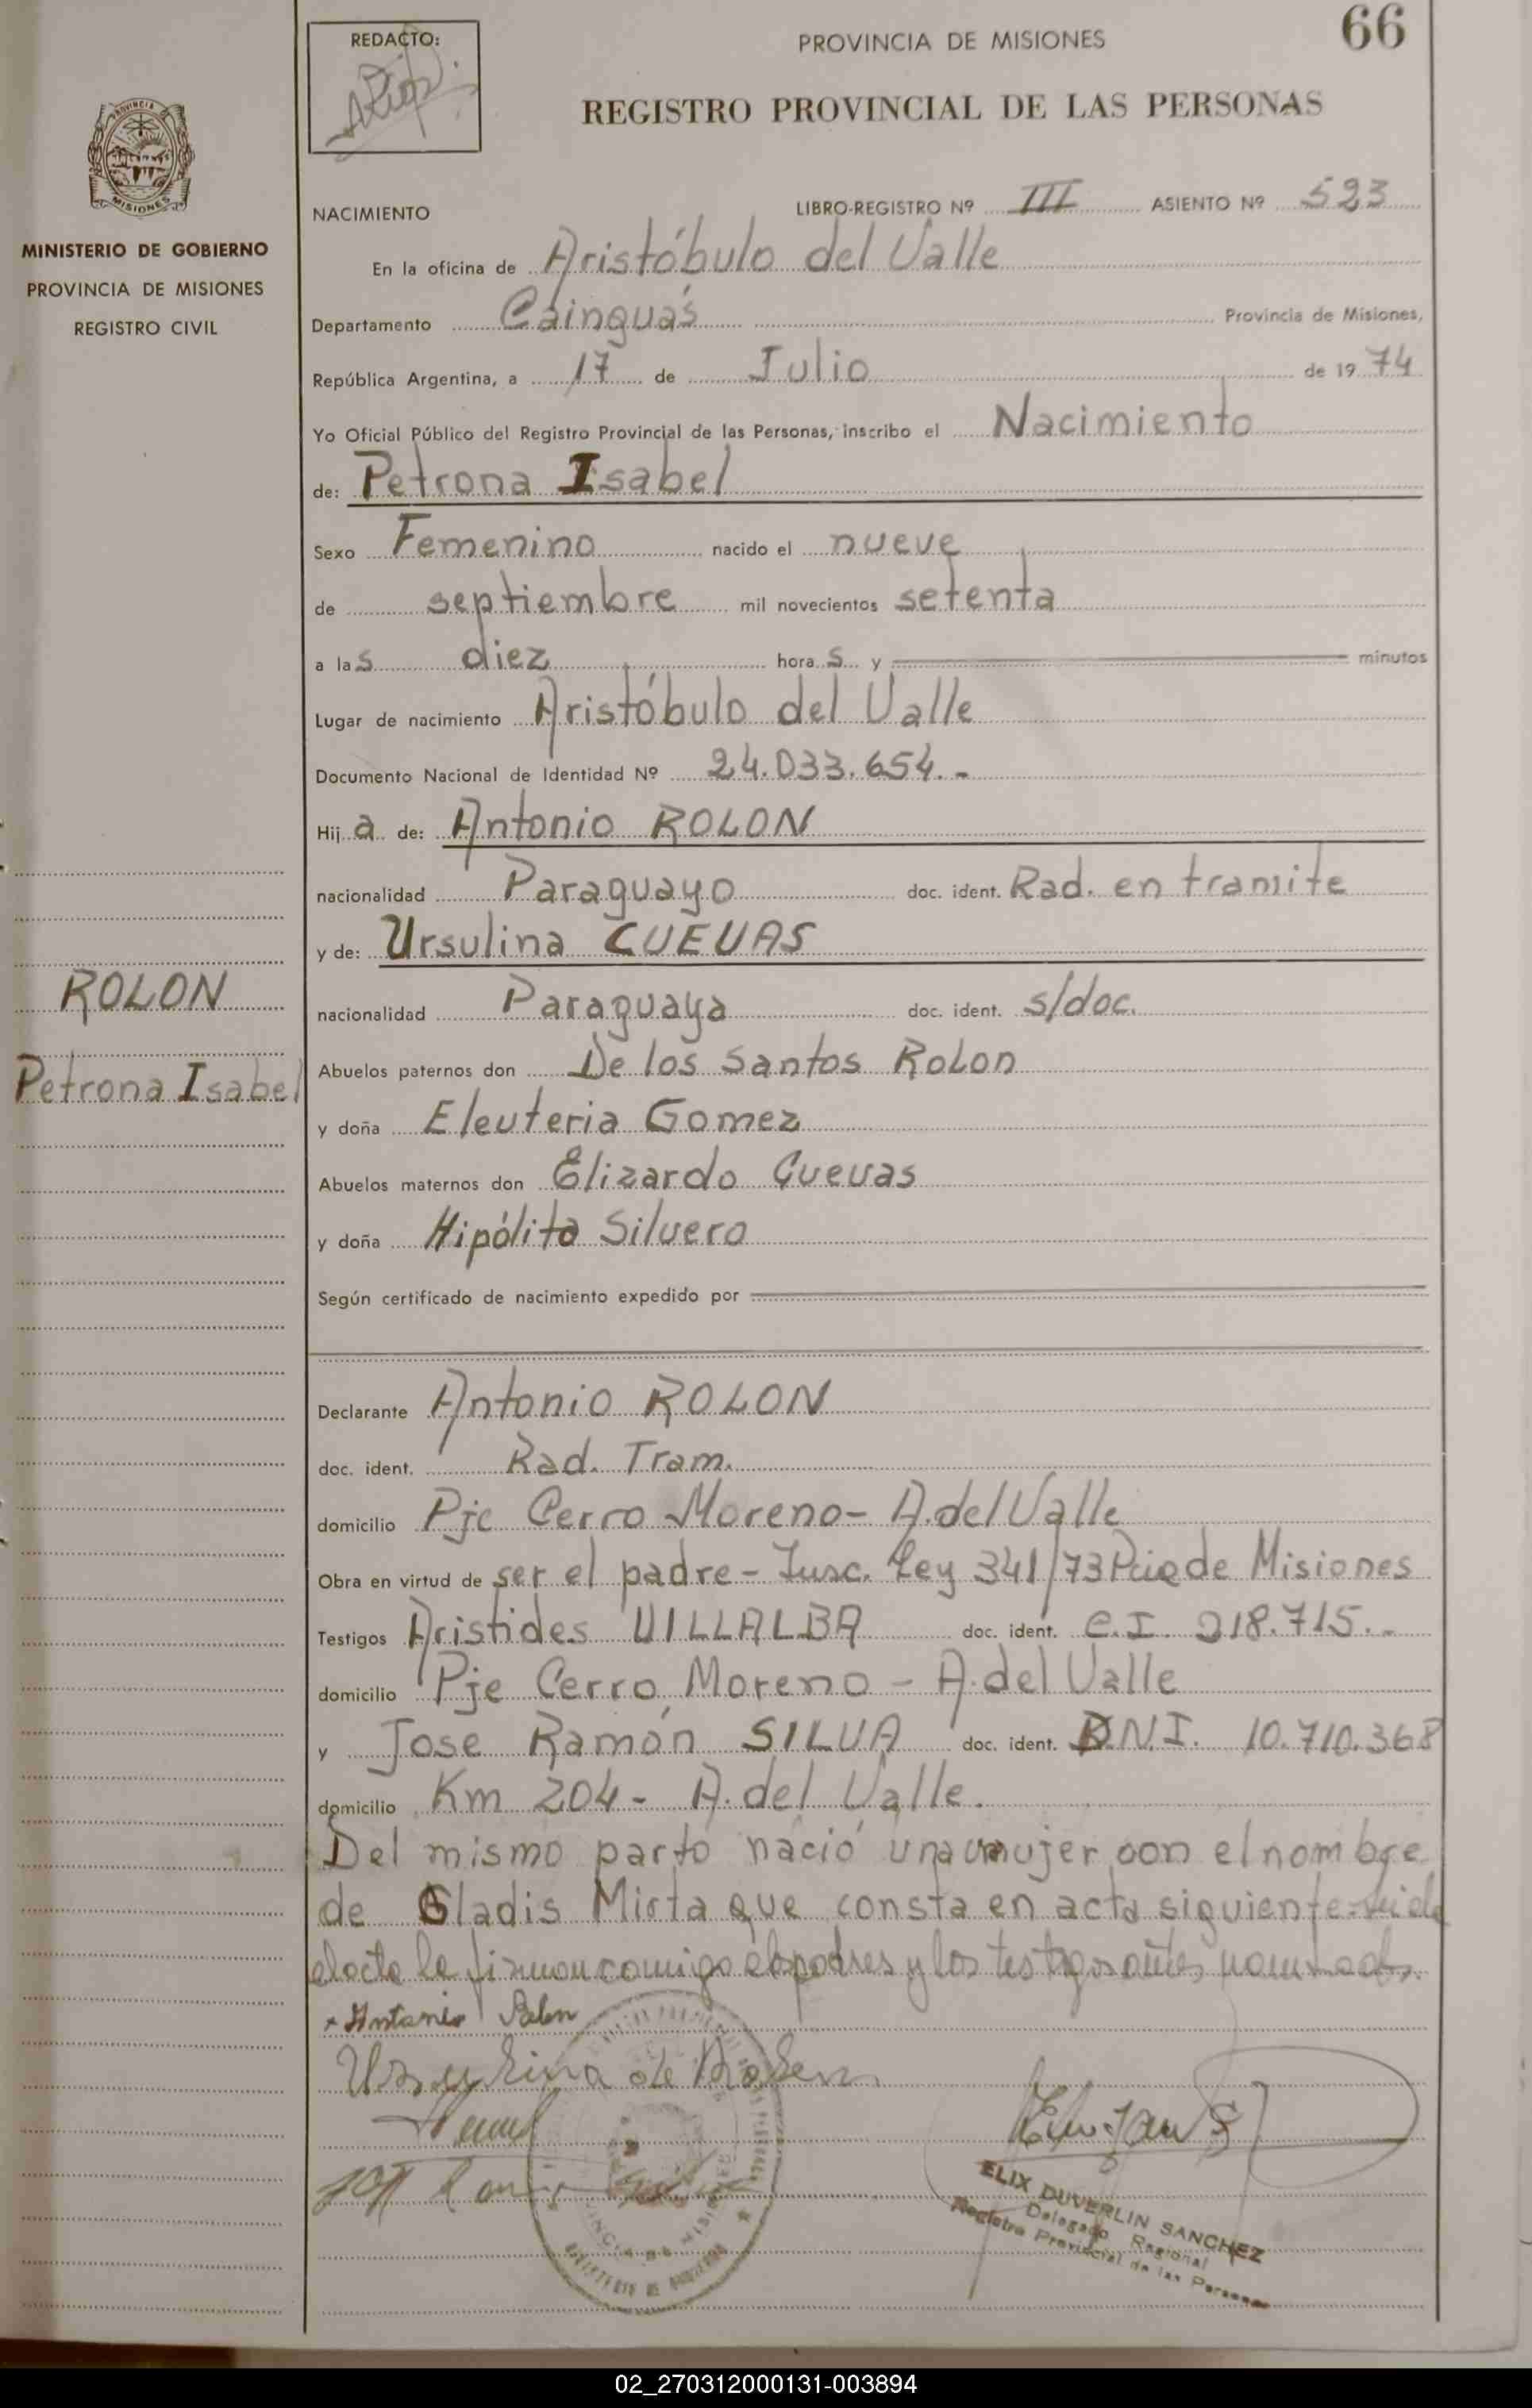 66
REDACTO:
PROVINCIA DE MISIONES
REGISTRO PROVINCIAL DE LAS PERSONAS
PROVINCIA
MISIONES
MINISTERIO DE GOBIERNO
PROVINCIA DE MISIONES
REGISTRO CIVIL
NACIMIENTO LIBRO-REGISTRO Nº III ASIENTO Nº 523
En la oficina de Aristóbulo del Valle
Departamento Cainguás Provincia de Misiones,
República Argentina, a 17 de Julio de 1974
Yo Oficial Público del Registro Provincial de las Personas, inscribo el Nacimiento
de: Petrona Isabel
Sexo Femenino nacido el nueve
de septiembre mil novecientos setenta
a las diez horas y minutos
Lugar de nacimiento Aristóbulo del Valle
Documento Nacional de Identidad Nº 24.033.654.-
Hija de: Antonio ROLON
nacionalidad Paraguayo doc. ident. Rad. en tramite
y de: Ursulina CUEVAS
ROLON
Petrona Isabel
nacionalidad Paraguaya doc. ident. s/doc.
Abuelos paternos don De los Santos Rolon
y doña Eleuteria Gomez
Abuelos maternos don Elizardo Cuevas
y doña Hipólita Silvero
Según certificado de nacimiento expedido por
Declarante Antonio ROLON
doc. ident. Rad. Tram.
domicilio Pje Cerro Moreno- A. del Valle
Obra en virtud de ser el padre - Insc. Ley 341/73 Pcia de Misiones
Testigos Aristides VILLALBA doc. ident. C.I. 218.715.-
domicilio Pje Cerro Moreno - A. del Valle
y Jose Ramón SILVA doc. ident. D.N.I. 10.710.368
domicilio Km 204- A. del Valle.
Del mismo parto nació una mujer con el nombre
de Gladis Mirta que consta en acta siguiente.
el acta la firman conmigo los padres y los testigos antes
Antonio Rolon
Ursulina de Rolon
ELIX DUVERLIN SANCHEZ
Delegado Regional
Registro Provincial de las Personas
02_270312000131-003894